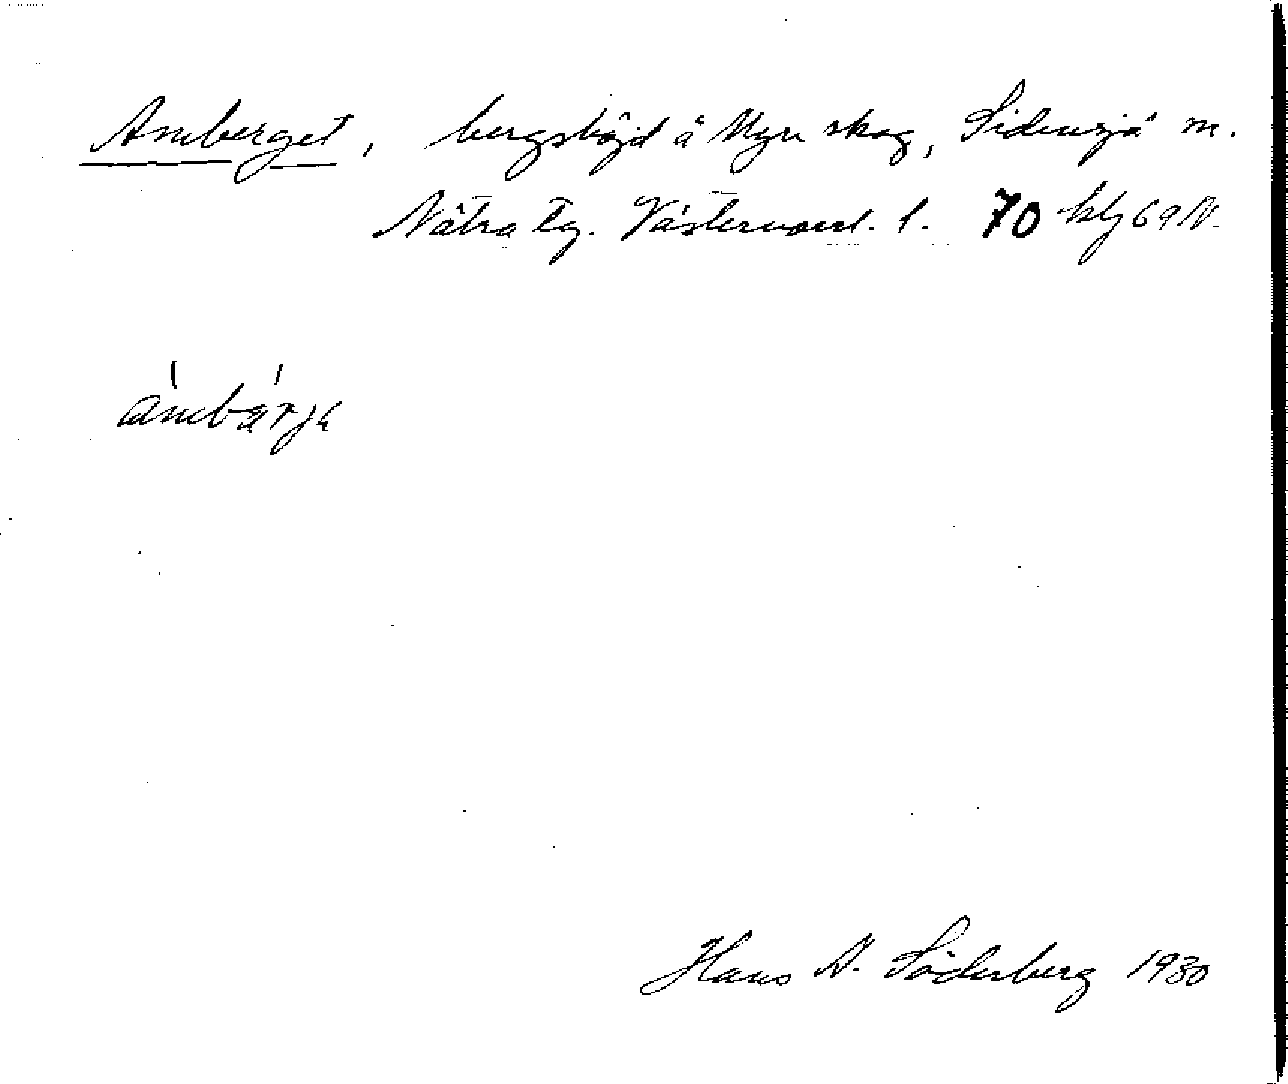 Amberget, bergshöjd å Myre skog, Sidensjö m.
Nätra tg. Västernorrl. l. 70 hlj 69 N.
ambärja
Hans A. Söderberg 1930